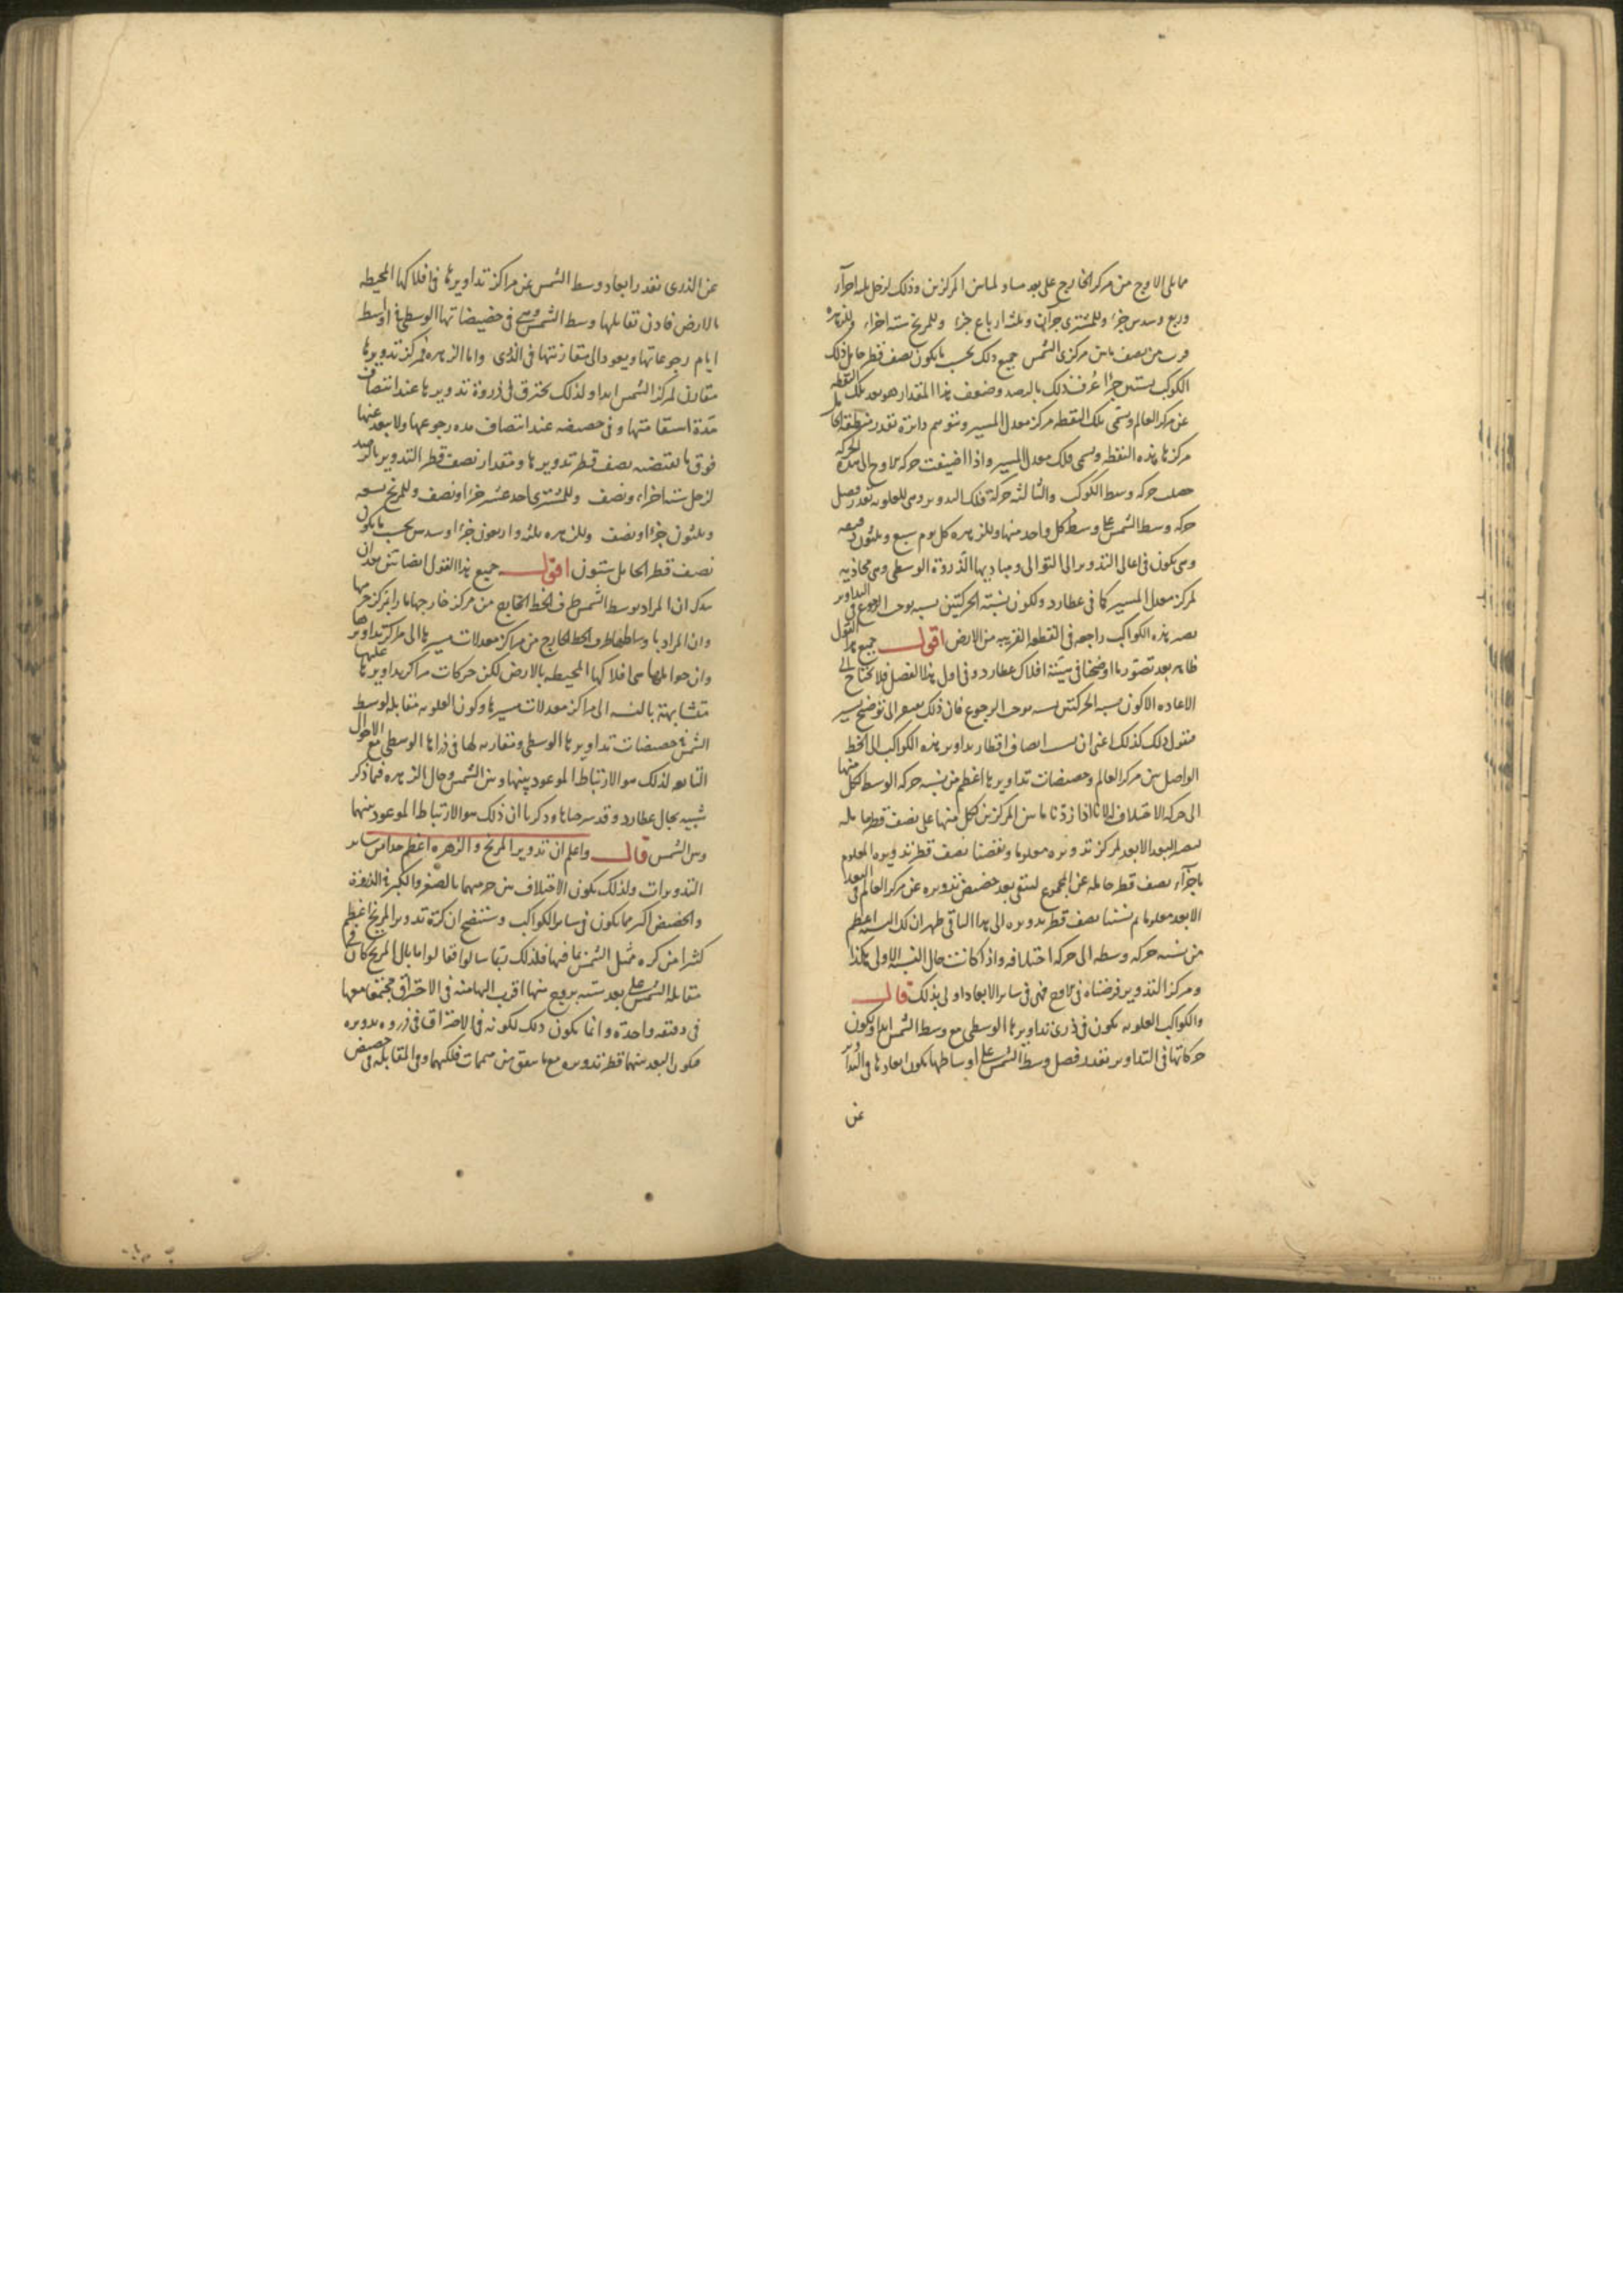 مما يلى الاوج من مركز الخارج على بعد مساو لما بين المركزين وذلك لزحل ثلثه اجزآء
وربع وسدس جزء وللمشترى جزآن وثلثه ارباع جزء وللمريخ سته اجزاء وللزهره
قرب من نصف ما بين مركزى الشمس جميع ذلك بحسب ما يكون نصف قطر حامل ذلك
الكوكب ستين جزءا عُرف ذلك بالرصد وضعف هذا المقدار هو بعد تلك النقطه
عن مركز العالم وتسمى تلك النقطه مركز معدل المسير وتتوهم دائرة بقدر منطقه الحامل
مركزها هذه النقطه ويسمى فلك معدل المسير واذا اضيفت حركه الاوج الى هذه الحركه
حصلت حركه وسط الكوكب والثالثه حركة فلك التدوير وهى للعلويه بقدر فضل
حركه وسط الشمس على وسط كل واحد منها وللزهره كل يوم سبع وثلثون دقيقه
وهى يكون فى اعالى التدوير الى التوالى ومباديها الذروة الوسطى وهى محاذيه
لمركز معدل المسير كما فى عطارد ولكون نسبته الحركتين نسبه توجب الرجوع فى التداوير
تصير هذه الكواكب راجعه فى القطعه القريبه من الارض اقول جميع هذا القول
ظاهر بعد تصور ما اوضحنا فى هيئة افلاك عطارد وفى اول هذا الفصل فلا يحتاج الى
الاعاده الا كون نسبه الحركتين نسبه توجب الرجوع فان ذلك يفتقر الى توضيح يسير
فنقول ذلك كذلك اعنى ان نسب انصاف اقطار تداوير هذه الكواكب الى الخط
الواصل بين مركز العالم وحضيضات تداويرها اعظم من نسبه حركه الوسط لكل منها
الى حركه الاختلاف لانا اذا زدنا ما بين المركزين لكل منها على نصف قطر حامله
ليصير البعد الابعد لمركز تدويره معلوما ونقصنا نصف قطر تدويره المعلوم
باجزآء نصف قطر حامله عن المجموع ليبقى بعد حضيض تدويره عن مركز العالم فى البعد
الابعد معلوما ثم نسبنا نصف قطر تدويره الى هذا الباقى ظهر ان تلك النسبه اعظم
من نسبه حركه وسطه الى حركه اختلافه واذا كانت حال النسبة الاولى هكذا
ومركز التدوير فرضناه فى الاوج فهى فى ساير الابعاد اولى بذلك قال
والكواكب العلويه يكون فى ذرى تداويرها الوسطى مع وسط الشمس ابدا ويكون
حركاتها فى التداوير بقدر فضل وسط الشمس على اوساطها يكون ابعادها فى التداوير
عن
عن الذرى بقدر ابعاد وسط الشمس عن مراكز تداويرها فى افلاكها المحيطه
بالارض فاذن تقابلها وسط الشمس وهى فى حضيضاتها الوسطى فى اواسط
ايام رجوعاتها ويعود الى مقارنتها فى الذرى واما الزهره فمركز تدويرها
مقارن لمركز الشمس ابدا ولذلك يحترق فى ذروة تدويرها عند انتصاف
مدة استقامتها وفى حضيضه عند انتصاف مده رجوعها ولا يبعد عنها
فوق ما يقتضيه نصف قطر تدويرها ومقدار نصف قطر التدوير بالرصد
لزحل سته اجزاء ونصف وللمشترى احد عشر جزءا ونصف وللمريخ تسعه
وثلثون جزءا ونصف وللزهره ثلثه واربعون جزءا وسدس بحسب ما يكون
نصف قطر الحامل ستون اقول جميع هذا القول ايضا بين بعد ان
يذكر ان المراد بوسط الشمس طرف الخط الخارج من مركز خارجها مارا بمركز جرمها
وان المراد باوساطها طرف الخط الخارج من مراكز معدلات مسيرها الى مراكز تداويرها
وان حواملها هى افلاكها المحيطه بالارض لكن حركات مراكز تداويرها عليها
متشابهة بالنسبه الى مراكز معدلات مسيرها وكون العلويه مقابله لوسط
الشمس فى حضيضات تداويرها الوسطى ومقارنه لها فى ذراها الوسطى مع الاحوال
التابعه لذلك هو الارتباط الموعود بينها وبين الشمس وحال الزهره فما ذكر
شبيه بحال عطارد وقد شرحناها وذكرنا ان ذلك هو الارتباط الموعود بينها
وبين الشمس قال واعلم ان تدوير المريخ والزهره اعظم جدا من ساير
التدويرات ولذلك يكون الاختلاف بين جرميهما بالصغر والكبر فى الذروة
والحضيض اكبر مما يكون فى ساير الكواكب وستتضح ان كرة تدوير المريخ اعظم
كثيرا من كره ممثل الشمس بما فيها فلذلك ربما سالوا فقالوا ما بال المريخ كان فى
مقابله الشمس على بعد سته بروج منها اقرب اليها منه فى الاحتراق مجتمعا معها
فى دقيقه واحدة وانما يكون ذلك لكونه فى الاحتراق فى ذروه تدويره
فيكون البعد بينهما قطر تدويره مع ما يتفق من متممات فلكيهما وفى المقابله فى حضيض